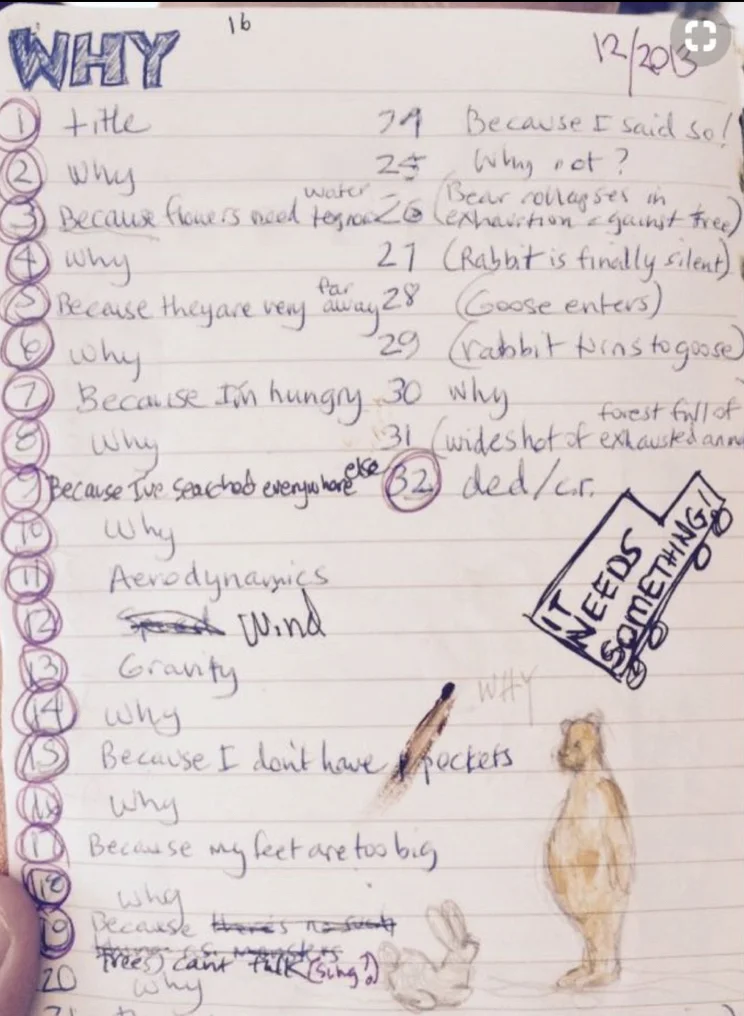 16
WHY
12/2013
1 title
2 Why
3 Because flowers need water
4 Why
5 Because they are very far away
6 Why
7 Because I'm hungry
8 Why
9 Because I've searched everywhere else
10 Why
11 Aerodynamics
12 Wind
13 Gravity
14 Why
15 Because I don't have pockets
16 Why
17 Because my feet are too big
18 Why
19 Because there's no such
trees) can't talk (sing?)
20 Why
21
24 Because I said so!
25 Why not?
26 (Bear collapses in
exhaustion against tree)
27 (Rabbit is finally silent)
28 (Goose enters)
29 (rabbit turns to goose)
30 Why
31 (wide shot of forest full of
exhausted
32 ded/c.r.
IT
NEEDS
SOMETHING!
WHY